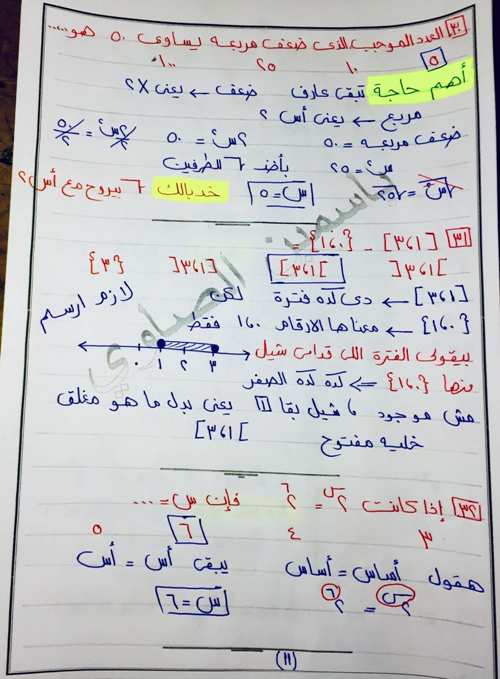 ٣٠ العدد الموجب الذى ضعف مربعه يساوى ٥٠ هو.....
٥ ١٠ ٢٥ ١٠٠
أهم حاجة تبقى عارف ضعف ← يعنى ×٢
مربع ← يعنى أس ٢
ضعف مربعه = ٥٠ ٢س٢ = ٥٠ ٢س٢/٢ = ٥٠/٢
س٢ = ٢٥ بأخذ √ للطرفين
√س٢ = √٢٥ س = ٥ خد بالك √ بيروح مع أس ٢
٣١ [٣،١] - {١،٠} =
]٣،١[ ]٣،١] [٣،١[ {٣}
[٣،١] ← دى كده فترة لكن
{١،٠} ← معناها الأرقام ١،٠ فقط
لازم ارسم
بيقولى الفترة اللى قدامى شيل
٠ ١ ٢ ٣
منها {١،٠} ⇐ كده كده الصفر
مش موجود ، شيل بقا ١ يعنى بدل ما هو مغلق
خليه مفتوح ]٣،١]
٣٢ إذا كانت ٢^س = ٢^٦ فإن س = ....
٣ ٤ ٦ ٥
هقول أساس = أساس يبقى أس = أس
٢^س = ٢^٦ س = ٦
(١١)
ياسمين الصاوي